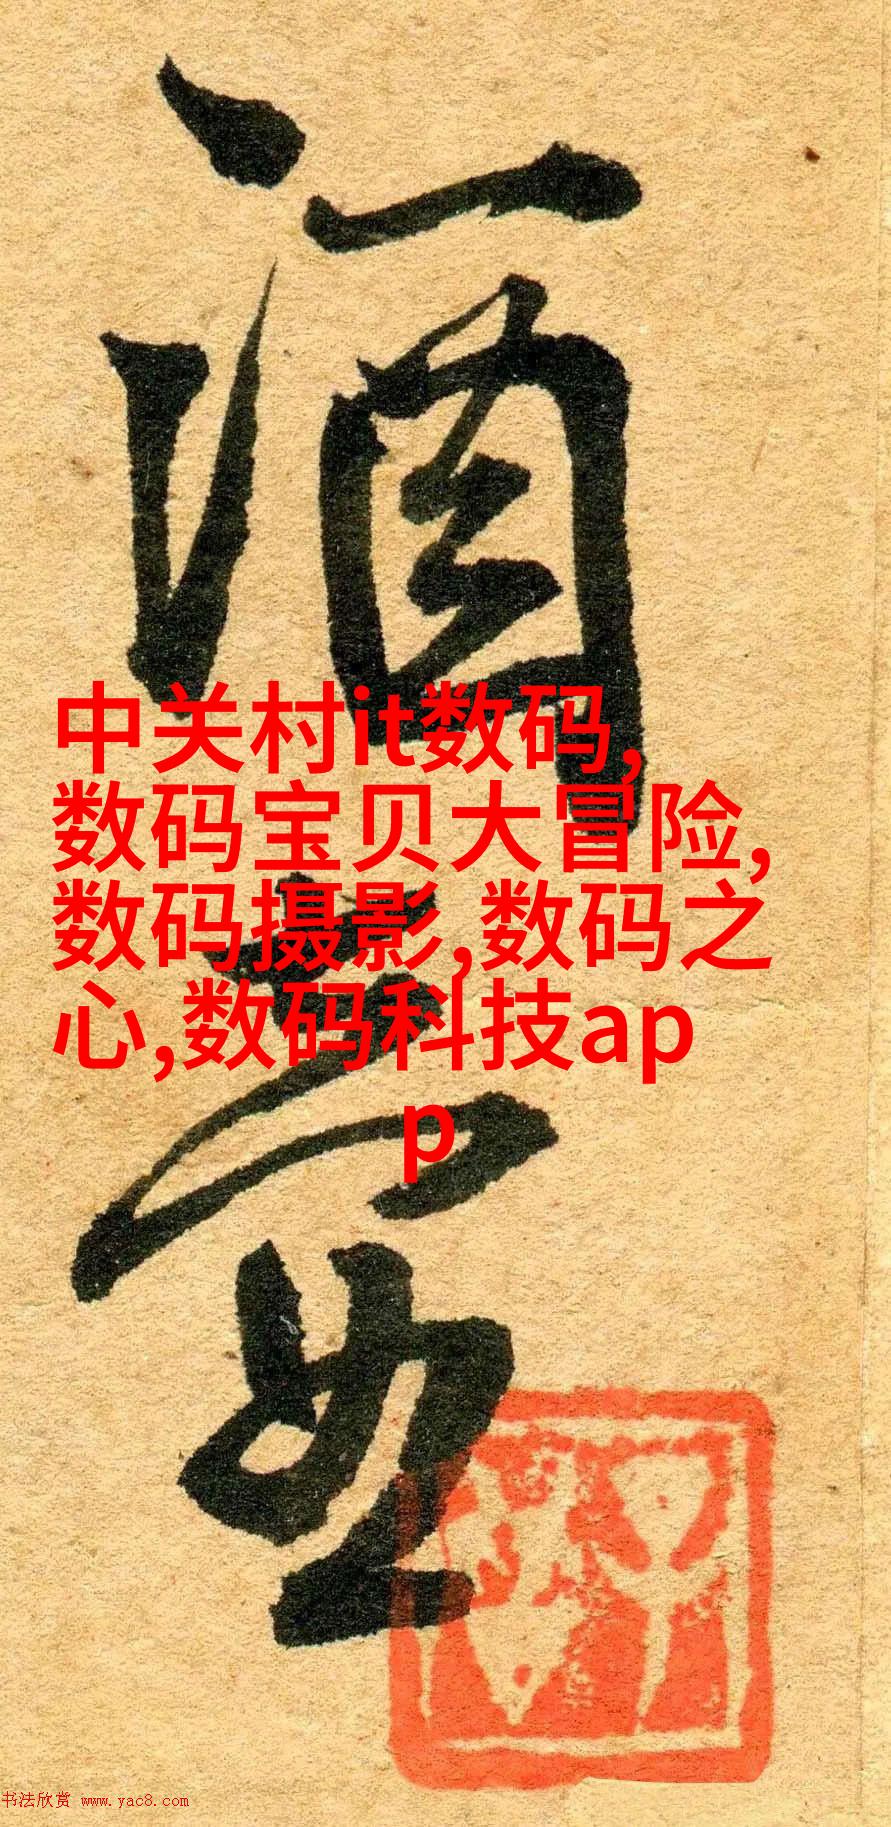 酒
中关村it数码,
数码宝贝大冒险,
数码摄影,数码之
心,数码科技ap
p
书法欣赏 www.yac8.com